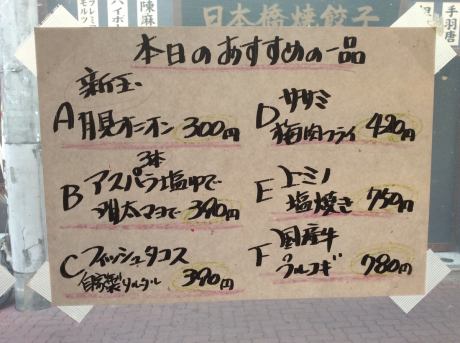 日本橋焼餃子
陳麻
ハイボ
手羽唐
本日のおすすめの一品
新玉
A 月見オニオン 300円
B アスパラ塩ゆで 3本
明太マヨで 390円
C フィッシュタコス
自家製タルタル 390円
D ササミ
梅肉フライ 420円
E 上ミノ
塩焼き 750円
F 国産牛
プルコギ 780円